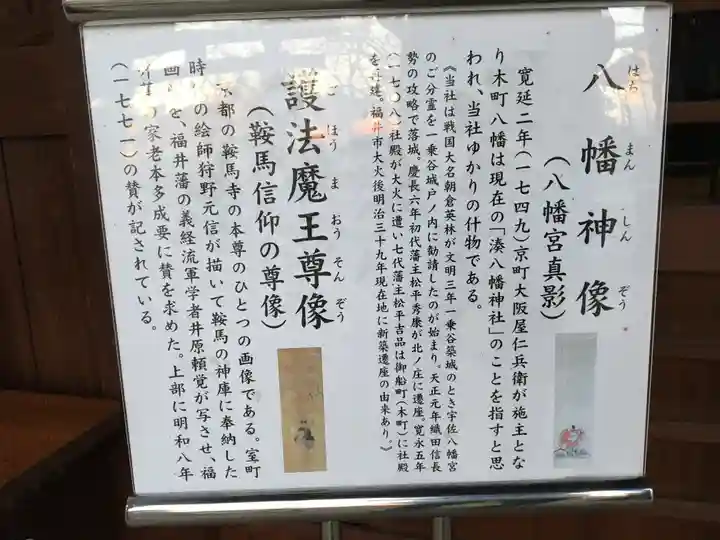 八幡神像
はち まん しん ぞう
(八幡宮真影)
寛延二年(一七四九)京町大阪屋仁兵衛が施主とな
り木町八幡は現在の「湊八幡神社」のことを指すと思
われ、当社ゆかりの什物である。
《当社は戦国大名朝倉英林が文明三年一乗谷築城のとき宇佐八幡宮
のご分霊を一乗谷城戸ノ内に勧請したのが始まり。天正元年織田信長
勢の攻略で落城。慶長六年初代藩主松平秀康が北ノ庄に遷座。寛永五年
(一七〇八)社殿が大火に遭い七代藩主松平吉品は御船町(木町)に社殿
を再建。福井市大火後明治三十九年現在地に新築遷座の由来あり。》
護法魔王尊像
ご ほう ま おう そん ぞう
(鞍馬信仰の尊像)
京都の鞍馬寺の本尊のひとつの画像である。室町
時の絵師狩野元信が描いて鞍馬の神庫に奉納した
画を、福井藩の義経流軍学者井原頼覚が写させ、福
家老本多成要に賛を求めた。上部に明和八年
(一七七一)の賛が記されている。